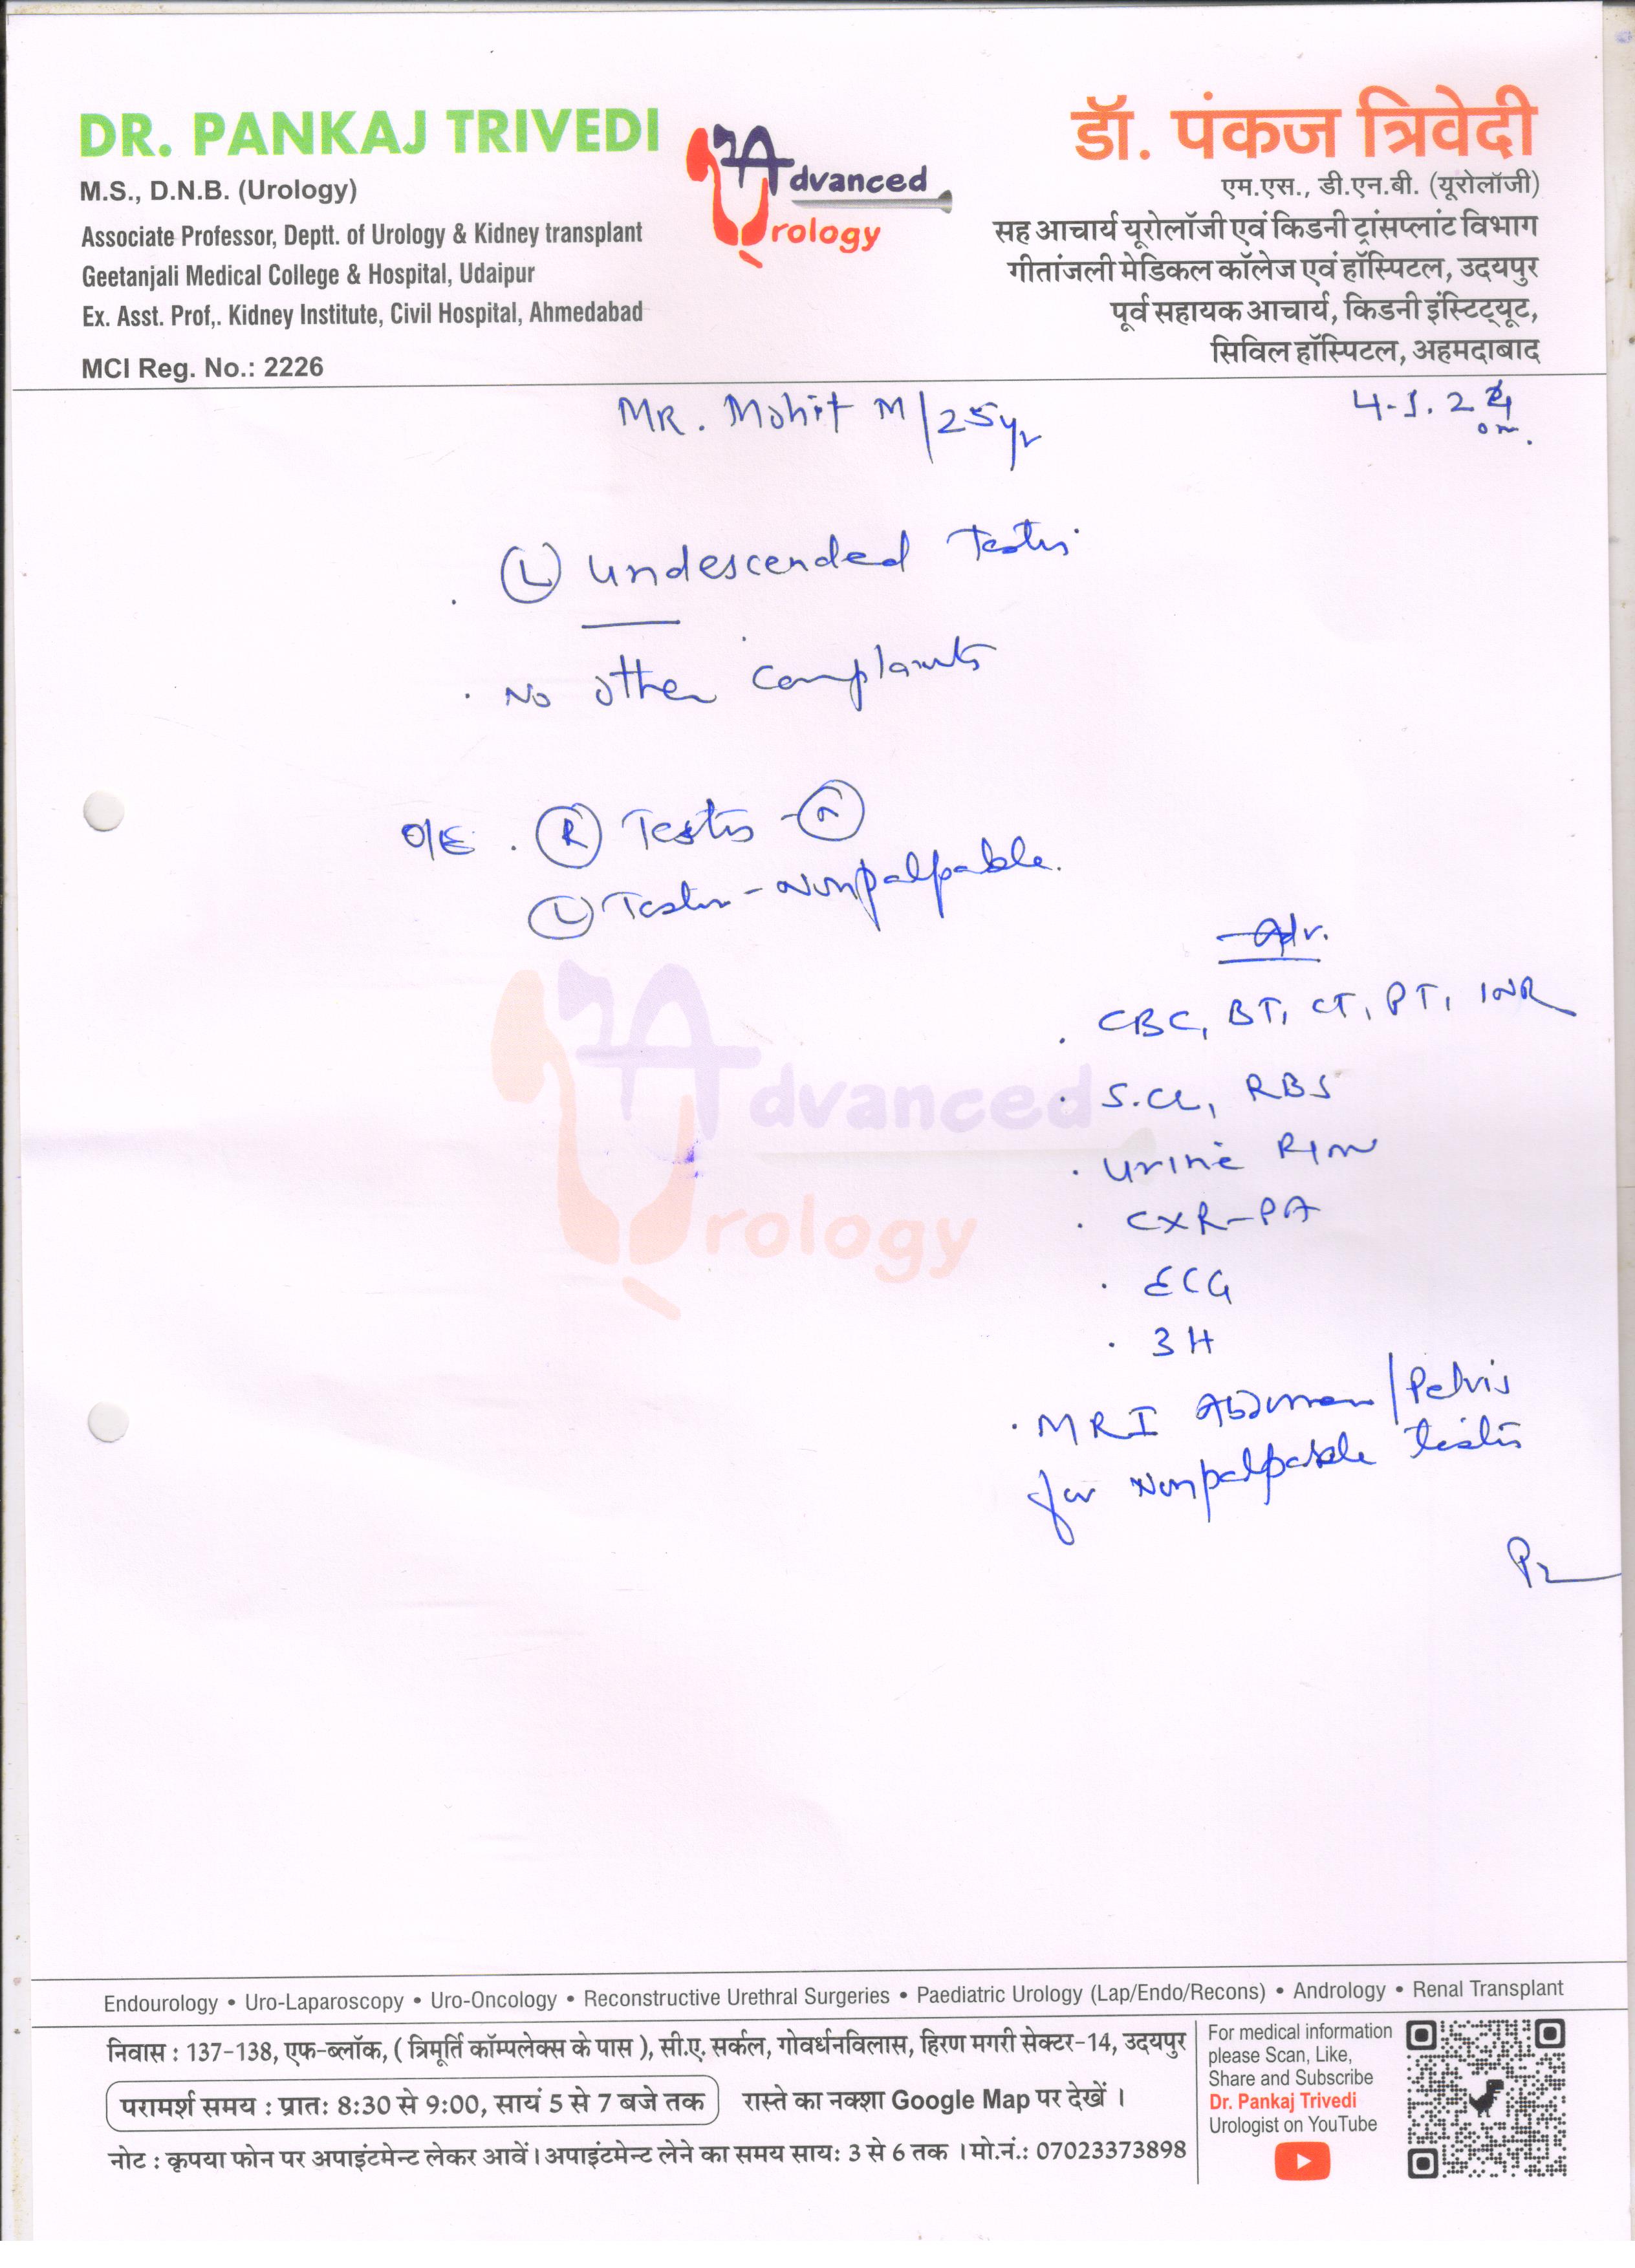 DR. PANKAJ TRIVEDI
M.S., D.N.B. (Urology)
Associate Professor, Deptt. of Urology & Kidney transplant
Geetanjali Medical College & Hospital, Udaipur
Ex. Asst. Prof,. Kidney Institute, Civil Hospital, Ahmedabad
MCI Reg. No.: 2226
Advanced
Urology
डॉ. पंकज त्रिवेदी
एम.एस., डी.एन.बी. (यूरोलॉजी)
सह आचार्य यूरोलॉजी एवं किडनी ट्रांसप्लांट विभाग
गीतांजली मेडिकल कॉलेज एवं हॉस्पिटल, उदयपुर
पूर्व सहायक आचार्य, किडनी इंस्टिट्यूट,
सिविल हॉस्पिटल, अहमदाबाद
MR. Mohit M/25yr
4.1.24
(L) undescended Testis
. No other complaints
O/E . (R) Testis - (N)
(L) Testis - Nonpalpable.
Adv.
. CBC, BT, CT, PT, INR
. S.Cr, RBS
. Urine R/M
. CXR-PA
. ECG
. 3H
. MRI Abdomen/Pelvis
for Nonpalpable testis
Advanced
Urology
Endourology • Uro-Laparoscopy • Uro-Oncology • Reconstructive Urethral Surgeries • Paediatric Urology (Lap/Endo/Recons) • Andrology • Renal Transplant
निवास : 137-138, एफ-ब्लॉक, ( त्रिमूर्ति कॉम्पलेक्स के पास ), सी.ए. सर्कल, गोवर्धनविलास, हिरण मगरी सेक्टर-14, उदयपुर
परामर्श समय : प्रातः 8:30 से 9:00, सायं 5 से 7 बजे तक रास्ते का नक्शा Google Map पर देखें ।
नोट : कृपया फोन पर अपाइंटमेन्ट लेकर आवें। अपाइंटमेन्ट लेने का समय सायः 3 से 6 तक । मो.नं.: 07023373898
For medical information
please Scan, Like,
Share and Subscribe
Dr. Pankaj Trivedi
Urologist on YouTube